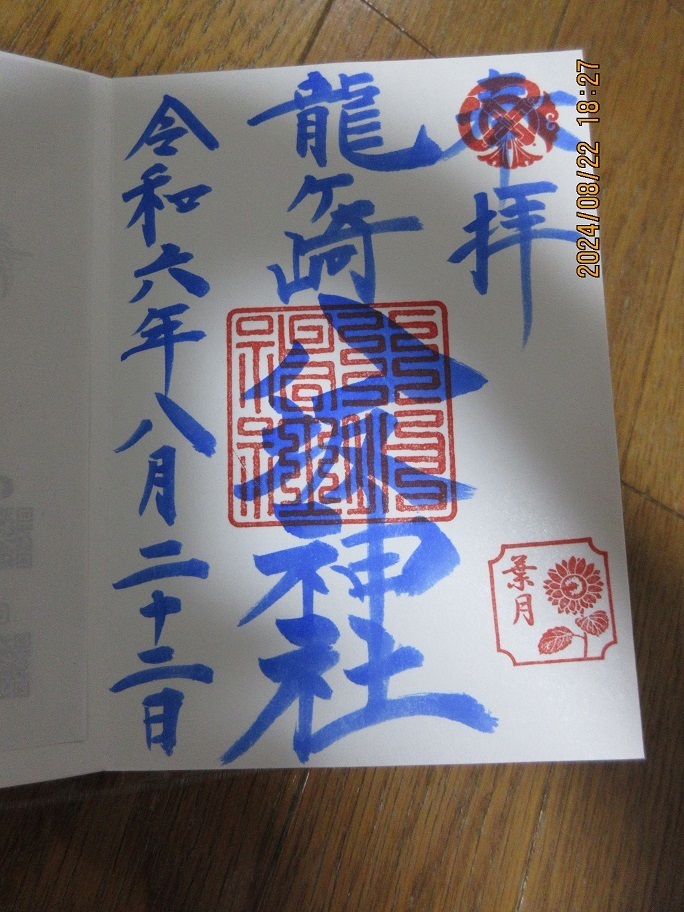 奉拝
葉月
龍ヶ崎八坂神社
令和六年八月二十二日
2024/08/22 18:27